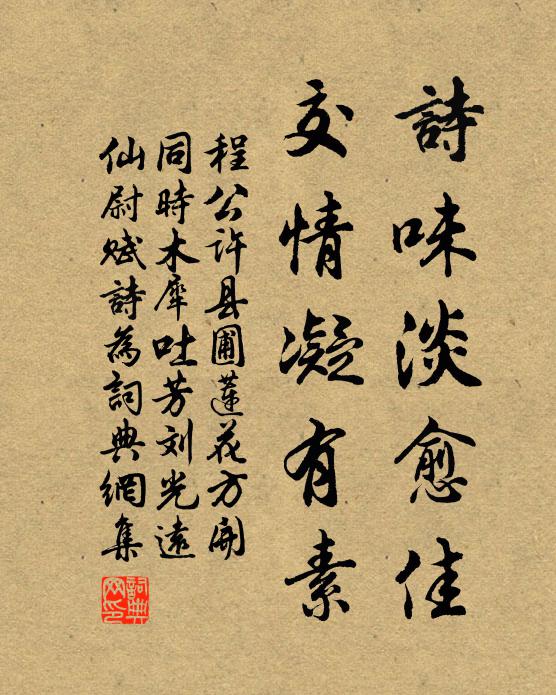 詩味淡愈佳
交情凝有素
程公许县圃蓮花方開
同時木犀吐芳刘光遠
仙尉赋詩為詞典網集
詞典网印